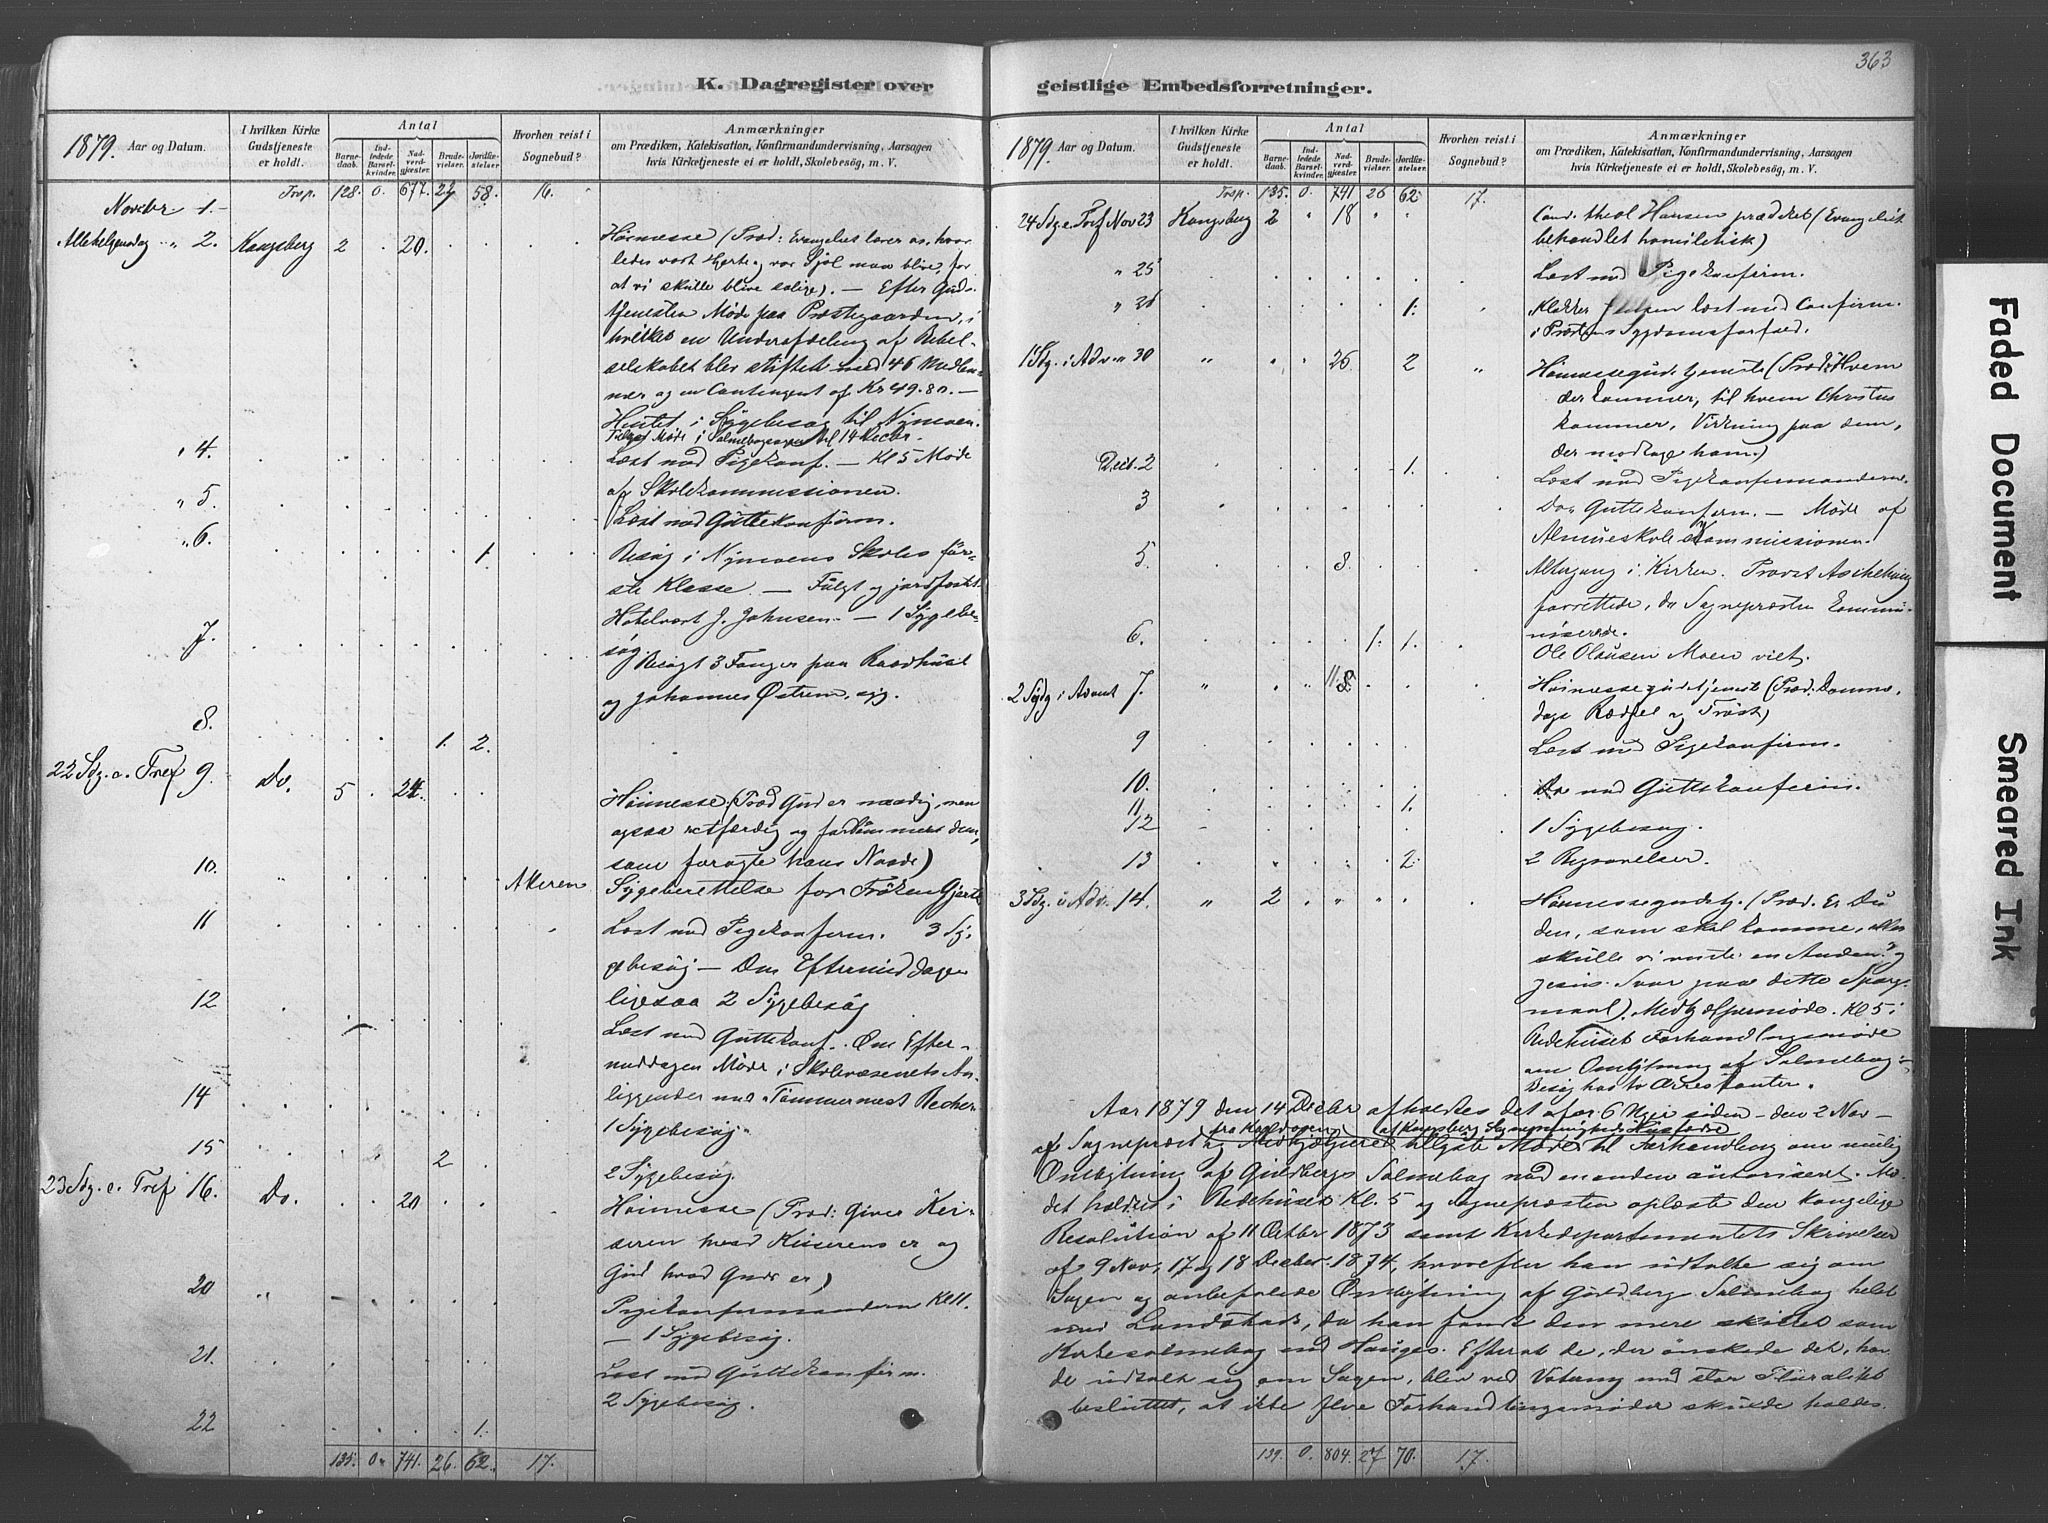 363
K. Dagregister over
geistlige Embedsforretninger.
1879. Aar og Datum.
I hvilken Kirke Gudstjeneste er holdt.
Antal
Barnedaab.
Indledede Barselkvinder.
Nadverdgjæster.
Brudevielser.
Jordfæstelser.
Hvorhen reist i Sognebud?
Anmærkninger
om Prædiken, Katekisation, Konfirmandundervisning, Aarsagen
hvis Kirketjeneste ei er holdt, Skolebesøg, m. V.
Trsp. 128. 0. 677. 23 58. 16.
Novbr 1.
Allehelgensdag " 2. Kongsberg 2 20.
Høimesse (Præd: Evangeliet lærer os, hvor
ledes vort Hjerte og vor Sjæl maa blive, for
at vi skulle blive salige). — Efter Guds-
tjenesten Møde paa Præstegaarden, i
hvilket en Underafdeling af Bibel-
selskabet blev stiftet med 46 Medlem-
mer og en Contingent af Kr 49.80. —
Hentet i Sygebesøg til Nymoen.
" 4.
Læst med Pigekonf. — Kl 5 Møde
af Skolekommissionen.
" 5.
Læst med Guttekonfirm.
" 6. 1.
Besøg i Nymoens Skoles før-
ste Klasse. — Fulgt og jordfæstet
Hotelvært J. Johnsen. — 1 Sygebe-
søg
7.
Besøgt 3 Fanger paa Raadhuset
og Johannes Østrem, syg.
8. 1. 2.
22 Sdg. e. Tref 9. Do. 5 24.
Høimesse. (Præd Gud er naadig, men
ogsaa retfærdig og fordømmer dem,
som foragte hans Naade)
10. Akeren
Sygeberettelse for Frøken Gjerts
11
Læst med Pigekonfirm. 3 Sy-
gebesøg — Om Eftermiddagen
ligesaa 2 Sygebesøg
12
Læst med Guttekonf. Om Efter-
middagen Møde i Skolevæsenets An-
liggender med Tømmermest
14
1 Sygebesøg.
15 2
2 Sygebesøg.
23 Sdg. e. Tref 16. Do. 20
Høimesse (Præd: Giver Kei-
seren hvad Keiserens er og
Gud hvad Guds er)
20 "
Pigekonfirmanderne Kl 11.
— 1 Sygebesøg.
21.
Læst med Guttekonfirm.
2 Sygebesøg.
22 1.
135. 0. 741. 26. 62. 17.
1879. Aar og Datum.
I hvilken Kirke Gudstjeneste er holdt.
Antal
Barnedaab.
Indledede Barselkvinder.
Nadverdgjæster.
Brudevielser.
Jordfæstelser.
Hvorhen reist i Sognebud?
Anmærkninger
om Prædiken, Katekisation, Konfirmandundervisning, Aarsagen
hvis Kirketjeneste ei er holdt, Skolebesøg, m. V.
Trsp. 135. 0. 741 26 62. 17.
24 Sdg. e. Tref Nov 23 Kongsberg 2 " 18 " "
Cand. theol Hansen prædket (Evangeliet
behandlet homiletisk)
" 25
Læst med Pigekonfirm.
1.
Klokker læst med Confirm.
i Præstens Sygdomsforfald.
1 Sdg. i Adv. " 30 " " " 26 2 "
Høimessegudstjeneste (Præd: Hvem
der kommer, til hvem Christus
kommer, Virkning paa dem,
der modtage ham.)
Decb. 2 1.
Læst med Pigekonfirmanderne.
3
Do. Guttekonfirm. — Møde af
Almueskolekommissionen.
5. 8.
Altergang i Kirken. Provst
forrettede, da Sognepræsten kommu-
niserede.
6. 1. 1.
Ole Olausen Moen viet.
2 Sdg i Advent 7. "
Høimessegudstjeneste (Præd. Domme-
dags Rædsel og Trøst)
9
Læst med Pigekonfirm.
10.
Do med Guttekonfirm.
11 1.
12
1 Sygebesøg.
13 2
2 Begravelser.
3 Sdg. i Adv. 14. " 2 " " "
Høimessegudstj. (Præd. Er Du
den, som skal komme, eller
skulle vi vente en Anden? og
Jesus Svar paa dette Spørgs-
maal). Medhjelpermøde. Kl 5 i
Bedehuset Forhandlingsmøde
om Ombytning af Salmebog —
Besøg hos to Arrestanter.
Aar 1879 den 14 Decbr afholdtes det for 6 Uger siden — den 2 Nov —
fra Kordøren af Kongsberg Sognemenigheds Husfædre
af Sognepræst og Medhjælpere tillyste Møde til Forhandling om mulig
Ombytning af Guldbergs Salmebog med en anden autoriseret. Mø-
det holdtes i Bedehuset Kl. 5 og Sognepræsten oplæste den kongelige
Resolution af 11 Octbr 1873 samt Kirkedepartementets Skrivelser
af 9 Nov, 17 og 18 Decbr 1874, hvorefter han udtalte sig om
Sagen og anbefalede Ombytning af Guldbergs Salmebog helst
med Landstads, da han fandt den mere skikket som
Kirkesalmebog end Hauges. Efterat de, der ønskede det, hav-
de udtalt sig om Sagen, blev ved Votering med stor Pluralitet
besluttet, at ikke flere Forhandlingsmøder skulde holdes.
139. 0. 804. 27 70. 17.
Faded Document
Smeared Ink